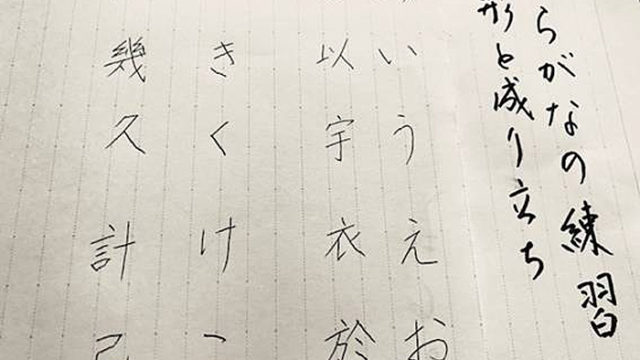 らがなの練習
形と成り立ち
いうえお
以宇衣於
きくけこ
幾久計己